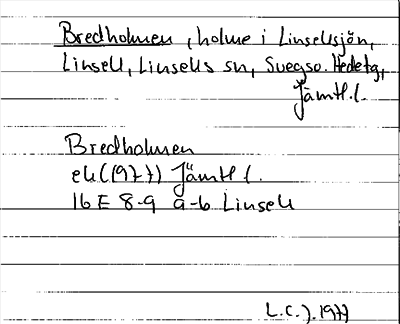 Bredholmen, holme i Linsellsjön,
Linsell, Linsells sn, Svegs o. Hedetg,
Jämtl. l.
Bredholmen
ek (1977) Jämtl l.
16 E 8-9 a-b Linsell
L.C.J. 1977